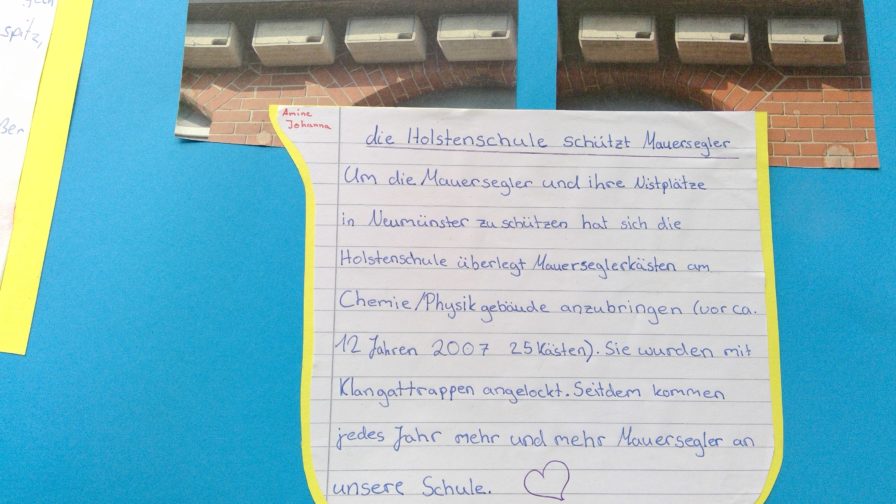 spitz,
Amine
Johanna
die Holstenschule schützt Mauersegler
Um die Mauersegler und ihre Nistplätze
in Neumünster zu schützen hat sich die
Holstenschule überlegt Mauerseglerkästen am
Chemie/Physikgebäude anzubringen (vor ca.
12 Jahren 2007 25 Kästen). Sie wurden mit
Klangattrappen angelockt. Seitdem kommen
jedes Jahr mehr und mehr Mauersegler an
unsere Schule.